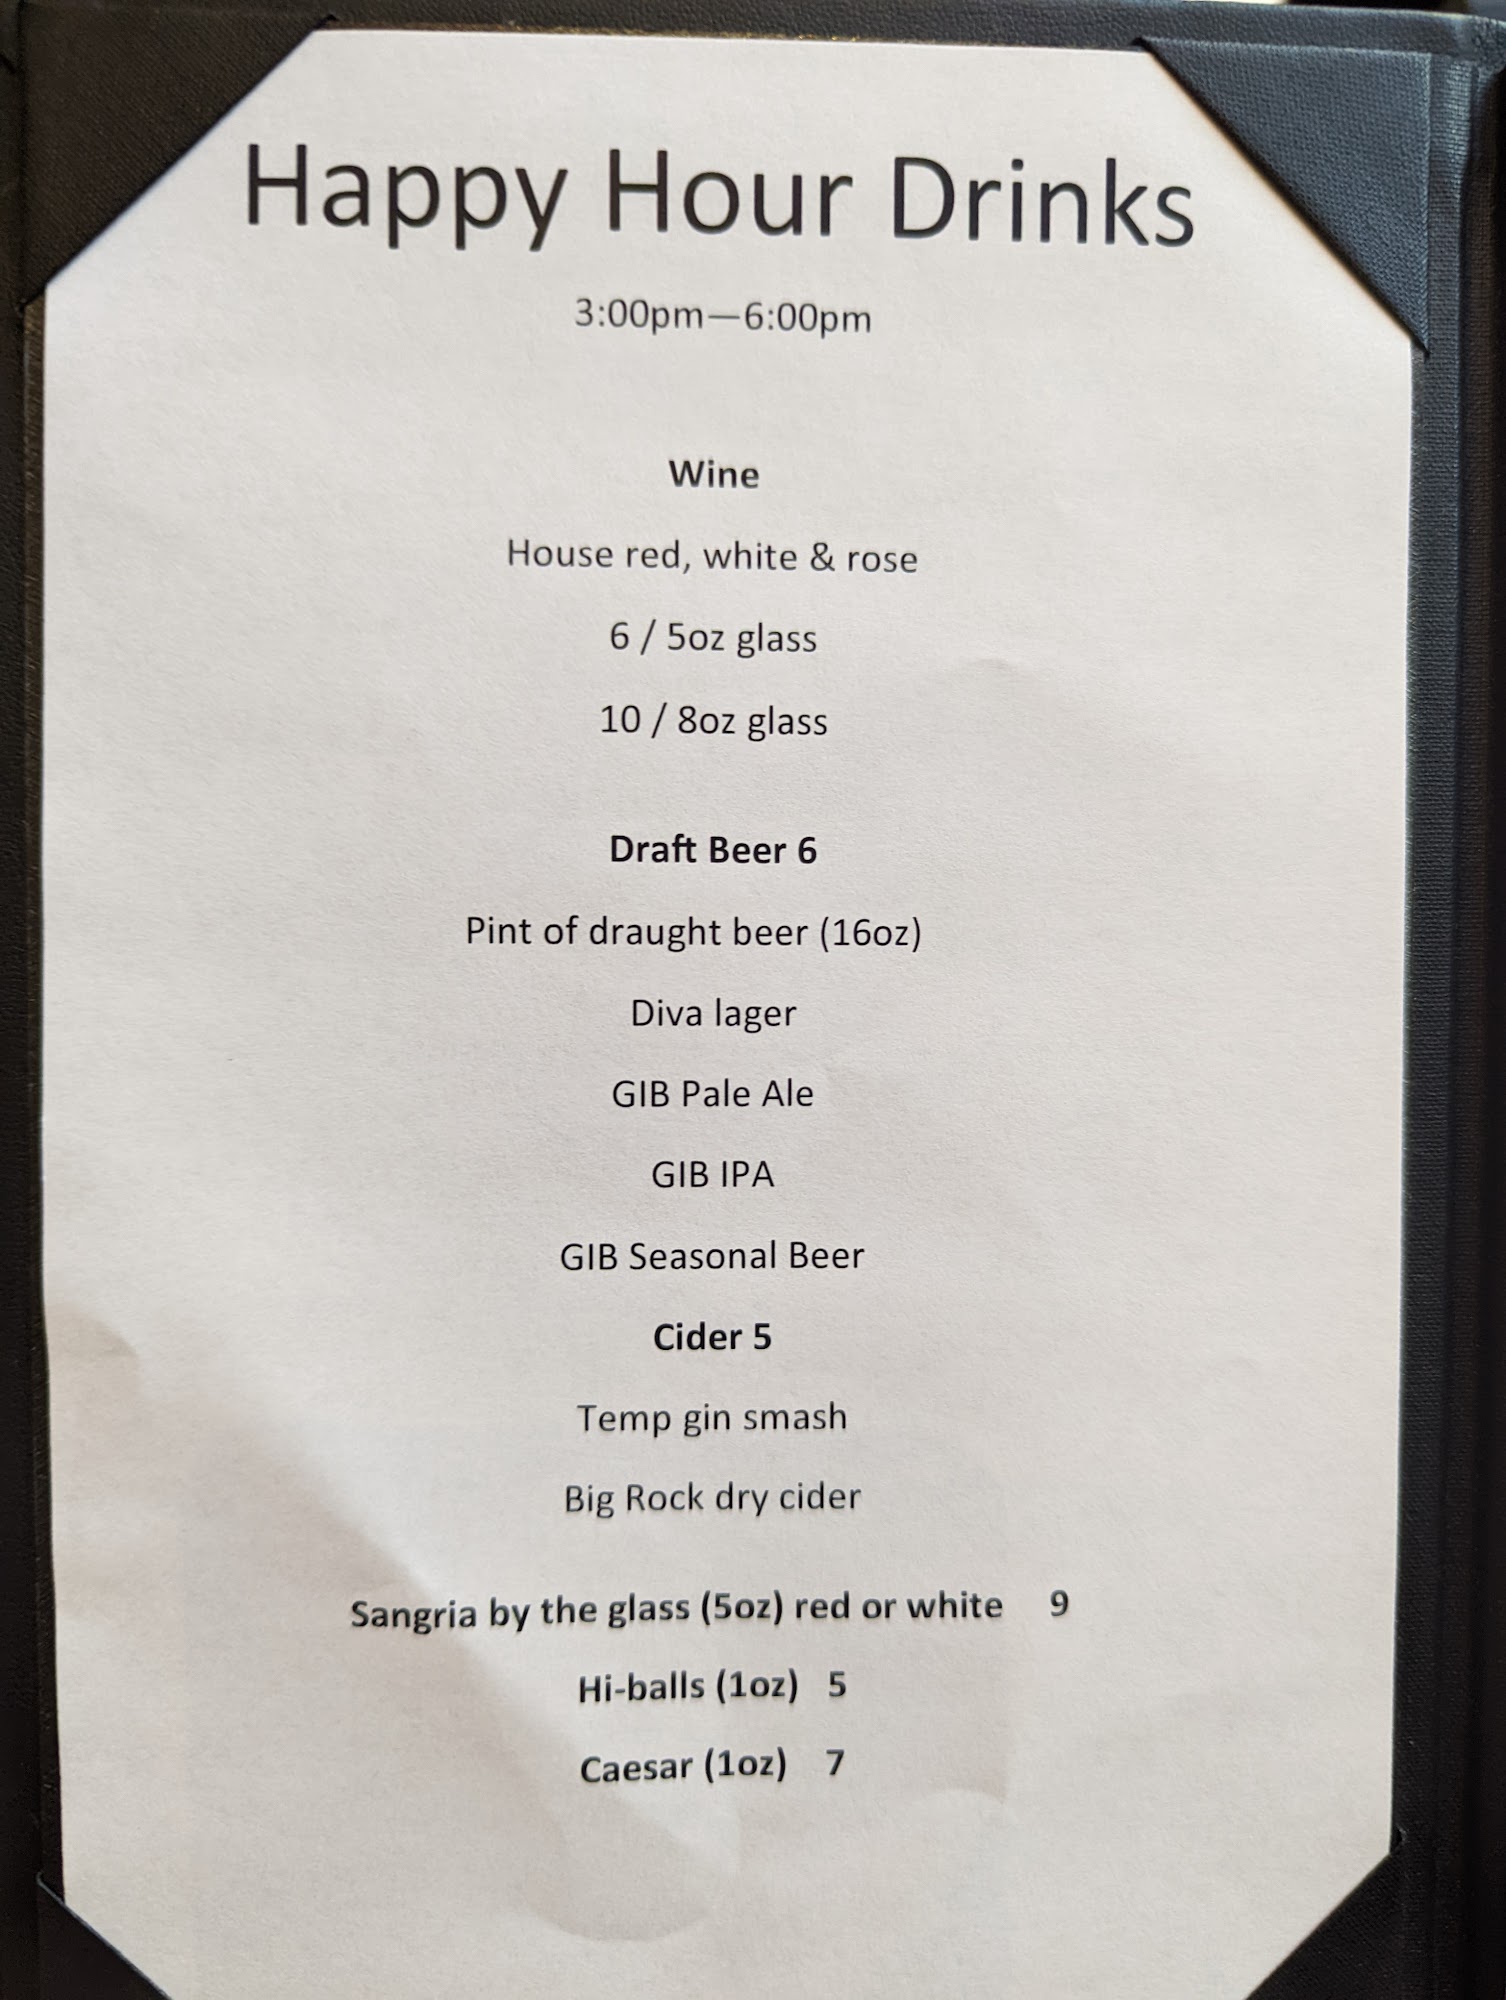 Happy Hour Drinks
3:00pm—6:00pm
Wine
House red, white & rose
6 / 5oz glass
10 / 8oz glass
Draft Beer 6
Pint of draught beer (16oz)
Diva lager
GIB Pale Ale
GIB IPA
GIB Seasonal Beer
Cider 5
Temp gin smash
Big Rock dry cider
Sangria by the glass (5oz) red or white 9
Hi-balls (1oz) 5
Caesar (1oz) 7